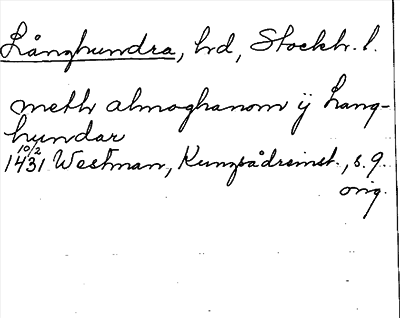 Långhundra, hd, Stockh. l.
meth almoghanom ÿ Lang-
hundar
10/2
1431 Westman, Kungsådreinst., s. 9.
orig.